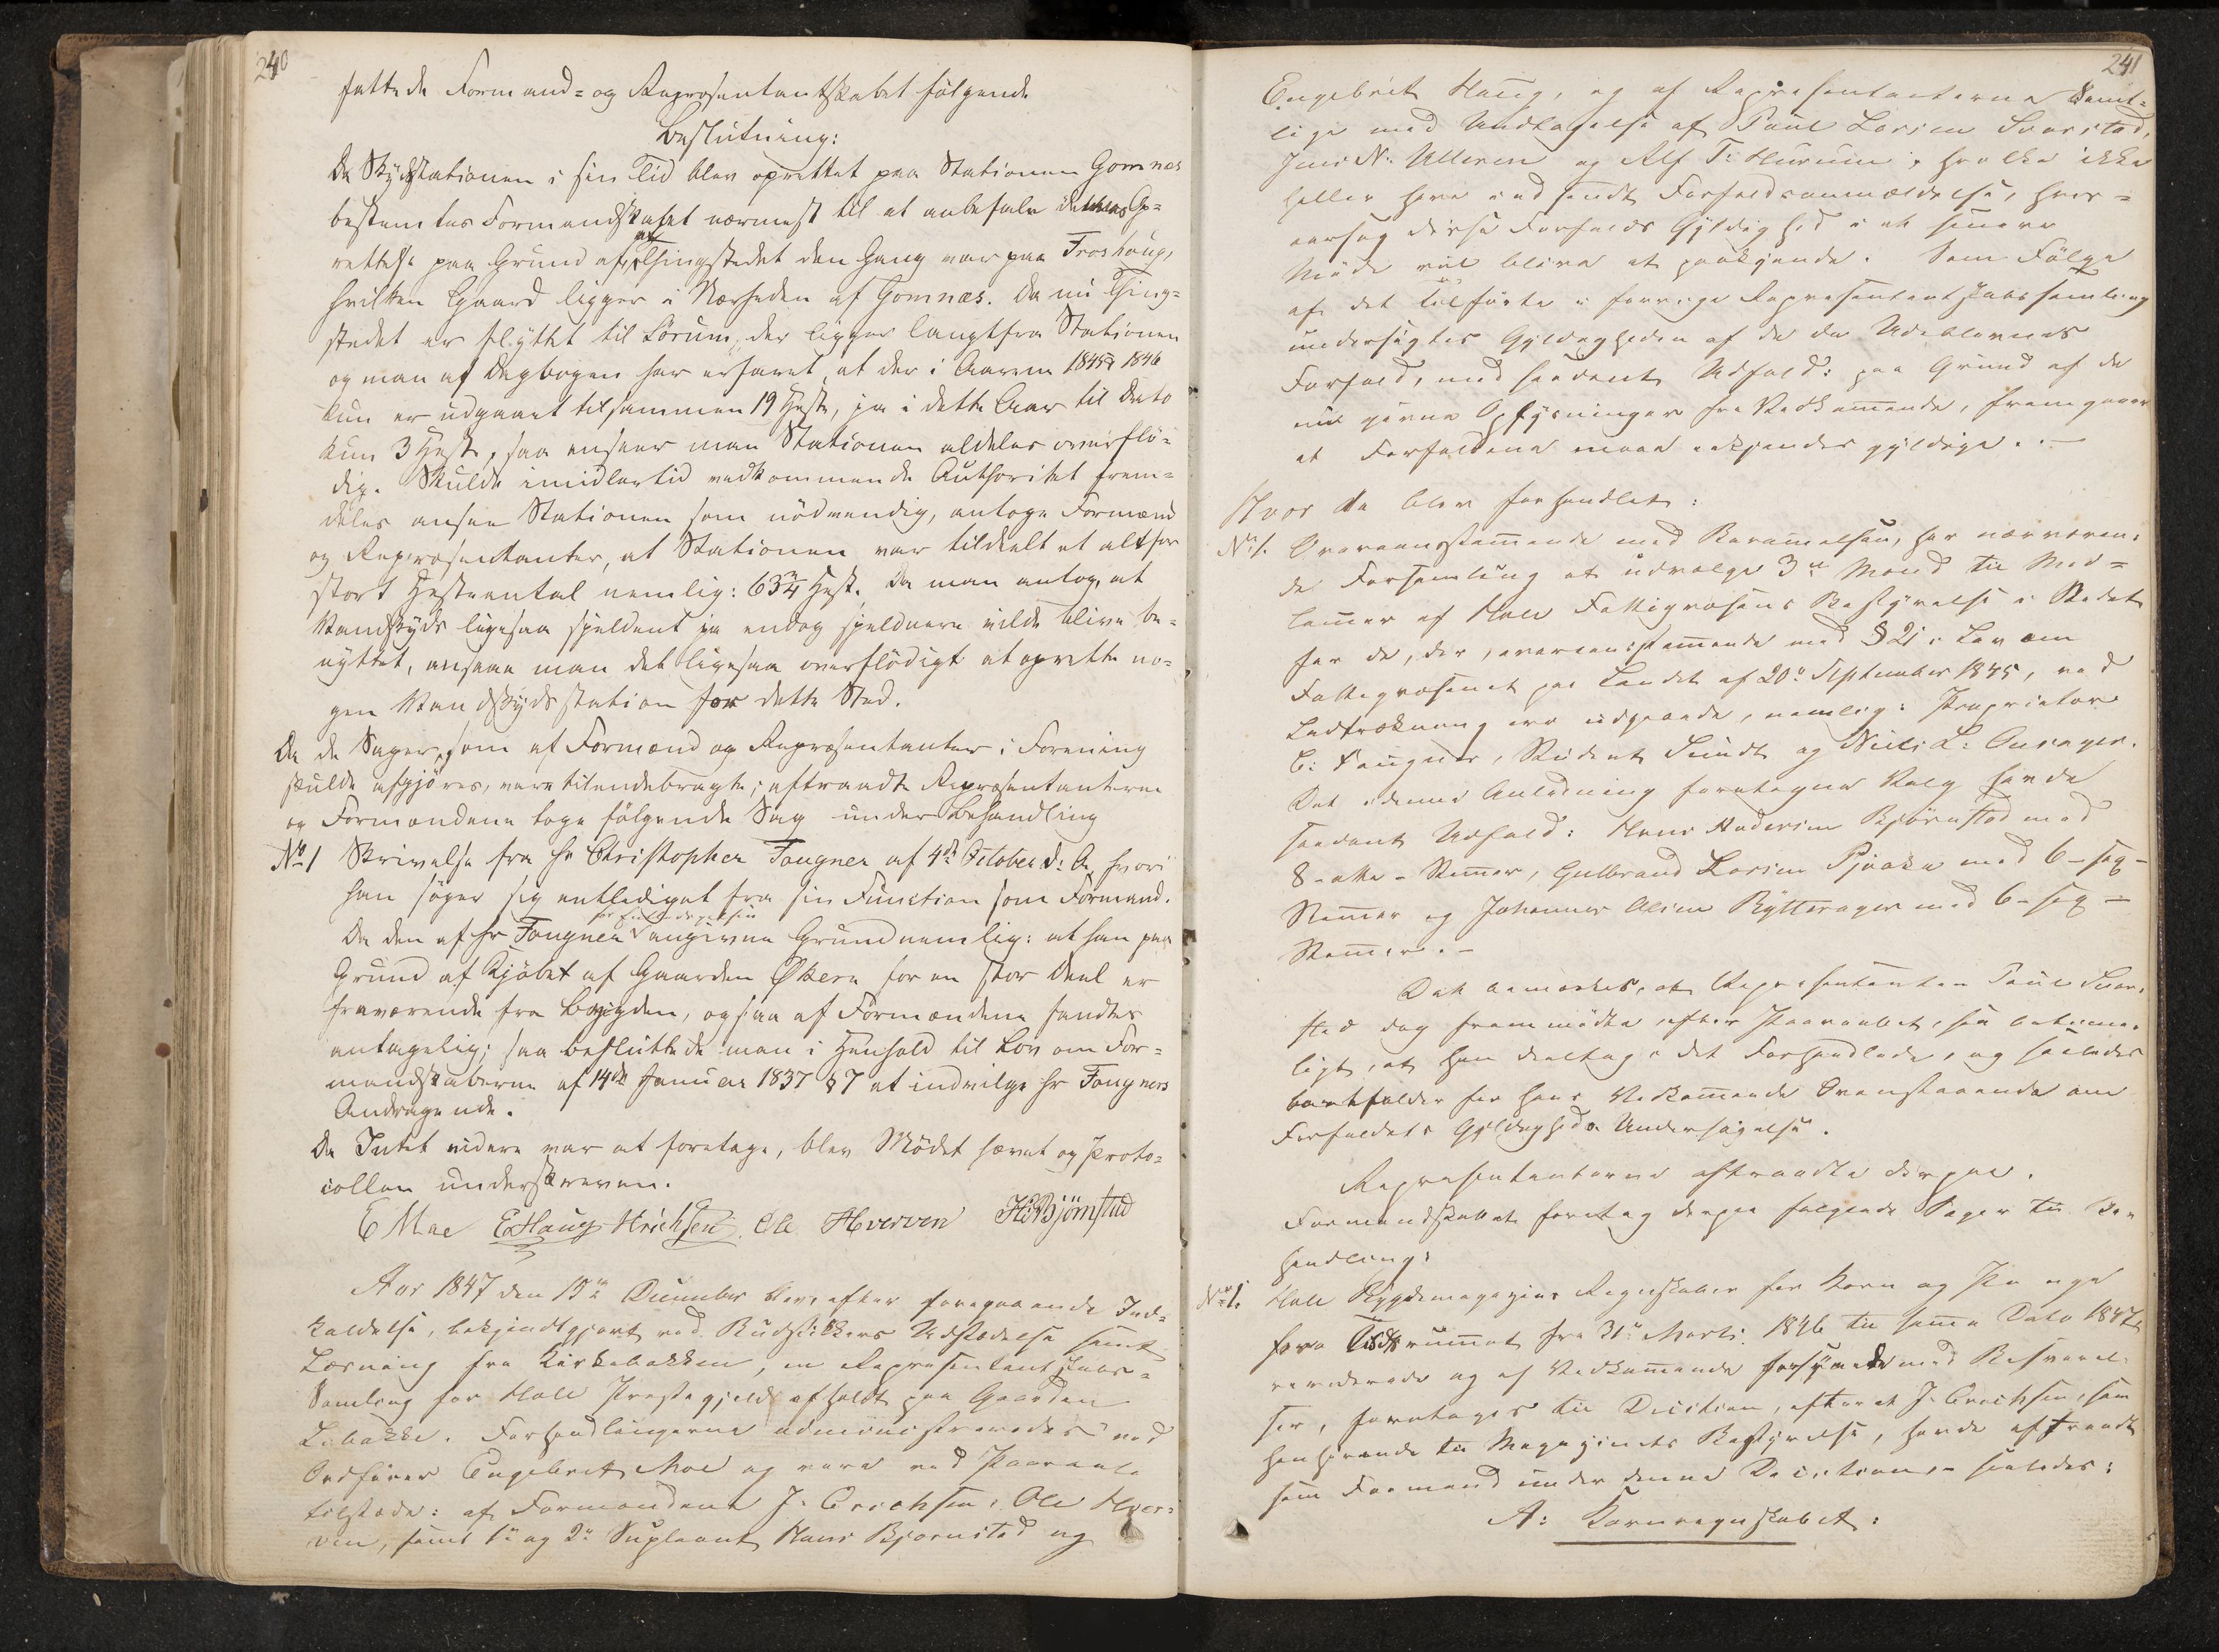 240
fattede Formand- og Repræsentantskabet følgende
Beslutning:
Da Skydsstationen i sin Tid blev oprettet paa Stationen Gomnæs
bestemtes Formandskabet nærmest til at anbefale dennes Op-
rettelse paa Grund af, at Thingstedet den Gang var paa Froshaug,
hvilken Gaard ligger i Nærheden af Gomnæs. Da nu Thing-
stedet er flyttet til Lörum, der ligger langt fra Stationen
og man af Dagbogen har erfaret, at der i Aarene 1845 og 1846
kun er udgaaet tilsammen 19 Heste, ja i dette Aar til Dato
kun 3 Heste, saa ansaaer man Stationen aldeles overflö-
dig. Skulde imidlertid vedkommende Authoritet frem-
deles ansee Stationen som nödvendig, antoge Formænd
og Repræsentanter, at Stationen var tildeelt et altfor
stort Hesteantal nemlig: 63 3/4 Hest. Da man antog, at
Vandskyds ligesaa sjeldent ja endog sjeldnere vilde blive be-
nyttet, ansaae man det ligesaa overflödigt at oprette no-
gen Vandskydsstation for dette Sted.
Da de Sager, som af Formænd og Repræsentanter i Forening
skulde afgjöres, vare tilendebragte; aftraadte Repræsentanterne
og Formændene toge fölgende Sag under Behandling
No 1 Skrivelse fra Hr Christopher Fougner af 4de October d: A. hvori
han söger sig entlediget fra sin Function som Formand.
for Entledigelsen
Da den af Hr Fougner angivne Grund nemlig: at han paa
Grund af Kjöbet af Gaarden Økern for en stor Deel er
fraværende fra Bygden, ogsaa af Formændene fandtes
antagelig; saa besluttede man i Henhold til Lov om For-
mandskaberne af 14de Januar 1837 § 7 at indvilge Hr Fougners
Andragende.
Da Intet videre var at foretage, blev Mödet hævet og Proto-
collen underskreven.
E Moe EHaug Hrichsen Ole Hverven HBjörnstad
Aar 1847 den 15de December blev efter foregaaende Ind-
kaldelse, bekjendtgjort ved Budstikkers Udstedelse samt
Læsning fra Kirkebakken, en Repræsentantskabs-
Samling for Hole Præstegjeld afholdt paa Gaarden
Libakke. Forhandlingerne administreredes ved
Ordförer Engebret Moe og vare ved Paaraab
tilstede: af Formændene J. Erichsen, Ole Hver-
ven, samt 1ste og 2den Supleant Hans Bjørnstad og
241
Engebret Haug, og af Repræsentanterne samt-
lige med Undtagelse af Poul Larsen Svarstad,
Jens N. Ulleren og Alf T. Hurum, hvilke ikke
heller have indsendt Forfaldsanmældelse, hvor-
aarsag disse Forfalds Gyldighed i et senere
Möde vil blive at paakjende. Som Fölge
af det tilförte i forrige Repræsentantskabssamling
undersögtes Gyldigheden af de da Udeblevnes
Forfald, med saadant Udfald: paa Grund af de
nu givne Oplysninger fra Vedkommende, fremgaaer
at Forfaldene maae erkjendes gyldige.—
Hvor da blev forhandlet:
No 1. Overeensstemmende med Berammelsen, har nærværen-
de Forsamling at udvælge 3de Mænd til Med-
lemmer af Hole Fattigvæsens Bestyrelse i Stedet
for de, der, overeensstemmende med § 2 i Lov om
Fattigvæsenet paa Landet af 20de September 1845, ved
Lodtrækning ere udgaaede, nemlig: Proprietær
C. Fougner, Student Sundt og Niels L. Onsager.
Det i denne Anledning foretagne Valg havde
saadant Udfald: Hans Andersen Bjørnstad med
8 – otte – Stemmer, Gulbrand Larsen Pjaaka med 6 – sex –
Stemmer og Johannes Olsen Rytterager med 6 – sex –
Stemmer.—
Det bemærkes, at Repræsentanten Poul Svar-
stad dog fremmödte efter Paaraabet, saa betime-
ligt, at han deeltog i det Forhandlede, og saaledes
bortfalder for hans Vedkommende Ovenstaaende om
Forfaldets Gyldigheds Undersögelse.
Repræsentanterne aftraadte derpaa.
Formandskabet foretog derpaa fölgende Sager til Be-
handling:
No 1. Hole Bygdemagazins Regnskaber for Korn og Penge
for Tidsrummet fra 31te Marts 1846 til samme Dato 1847
reviderede og af Vedkommende forsynede med Besvarel-
ser, foretoges til Decision, efter at J. Erichsen, som
henhörende til Magazinets Bestyrelse, havde aftraadt
som Formand under denne Decision,– saaledes:
A: Kornregnskabet: